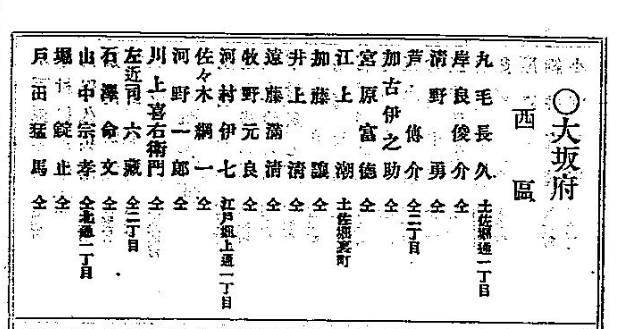 〇大坂府
西區
丸毛長久 土佐堀通一丁目
岸良俊介 仝
清野勇 仝
芦傳介 仝二丁目
加古伊之助 仝
宮原富德 仝
江上潮 土佐堀裏町
加藤讓 仝
井上清 仝
遠藤滿清 仝
牧野元良 仝
河村伊七 江戸堀上通一丁目
佐々木綱一 仝
河野一郎 仝
川上喜右衛門 仝
左近司六藏 仝二丁目
石澤命文 仝
山中宗孝 仝北通一丁目
堀錠止 仝
戸田猛馬 仝